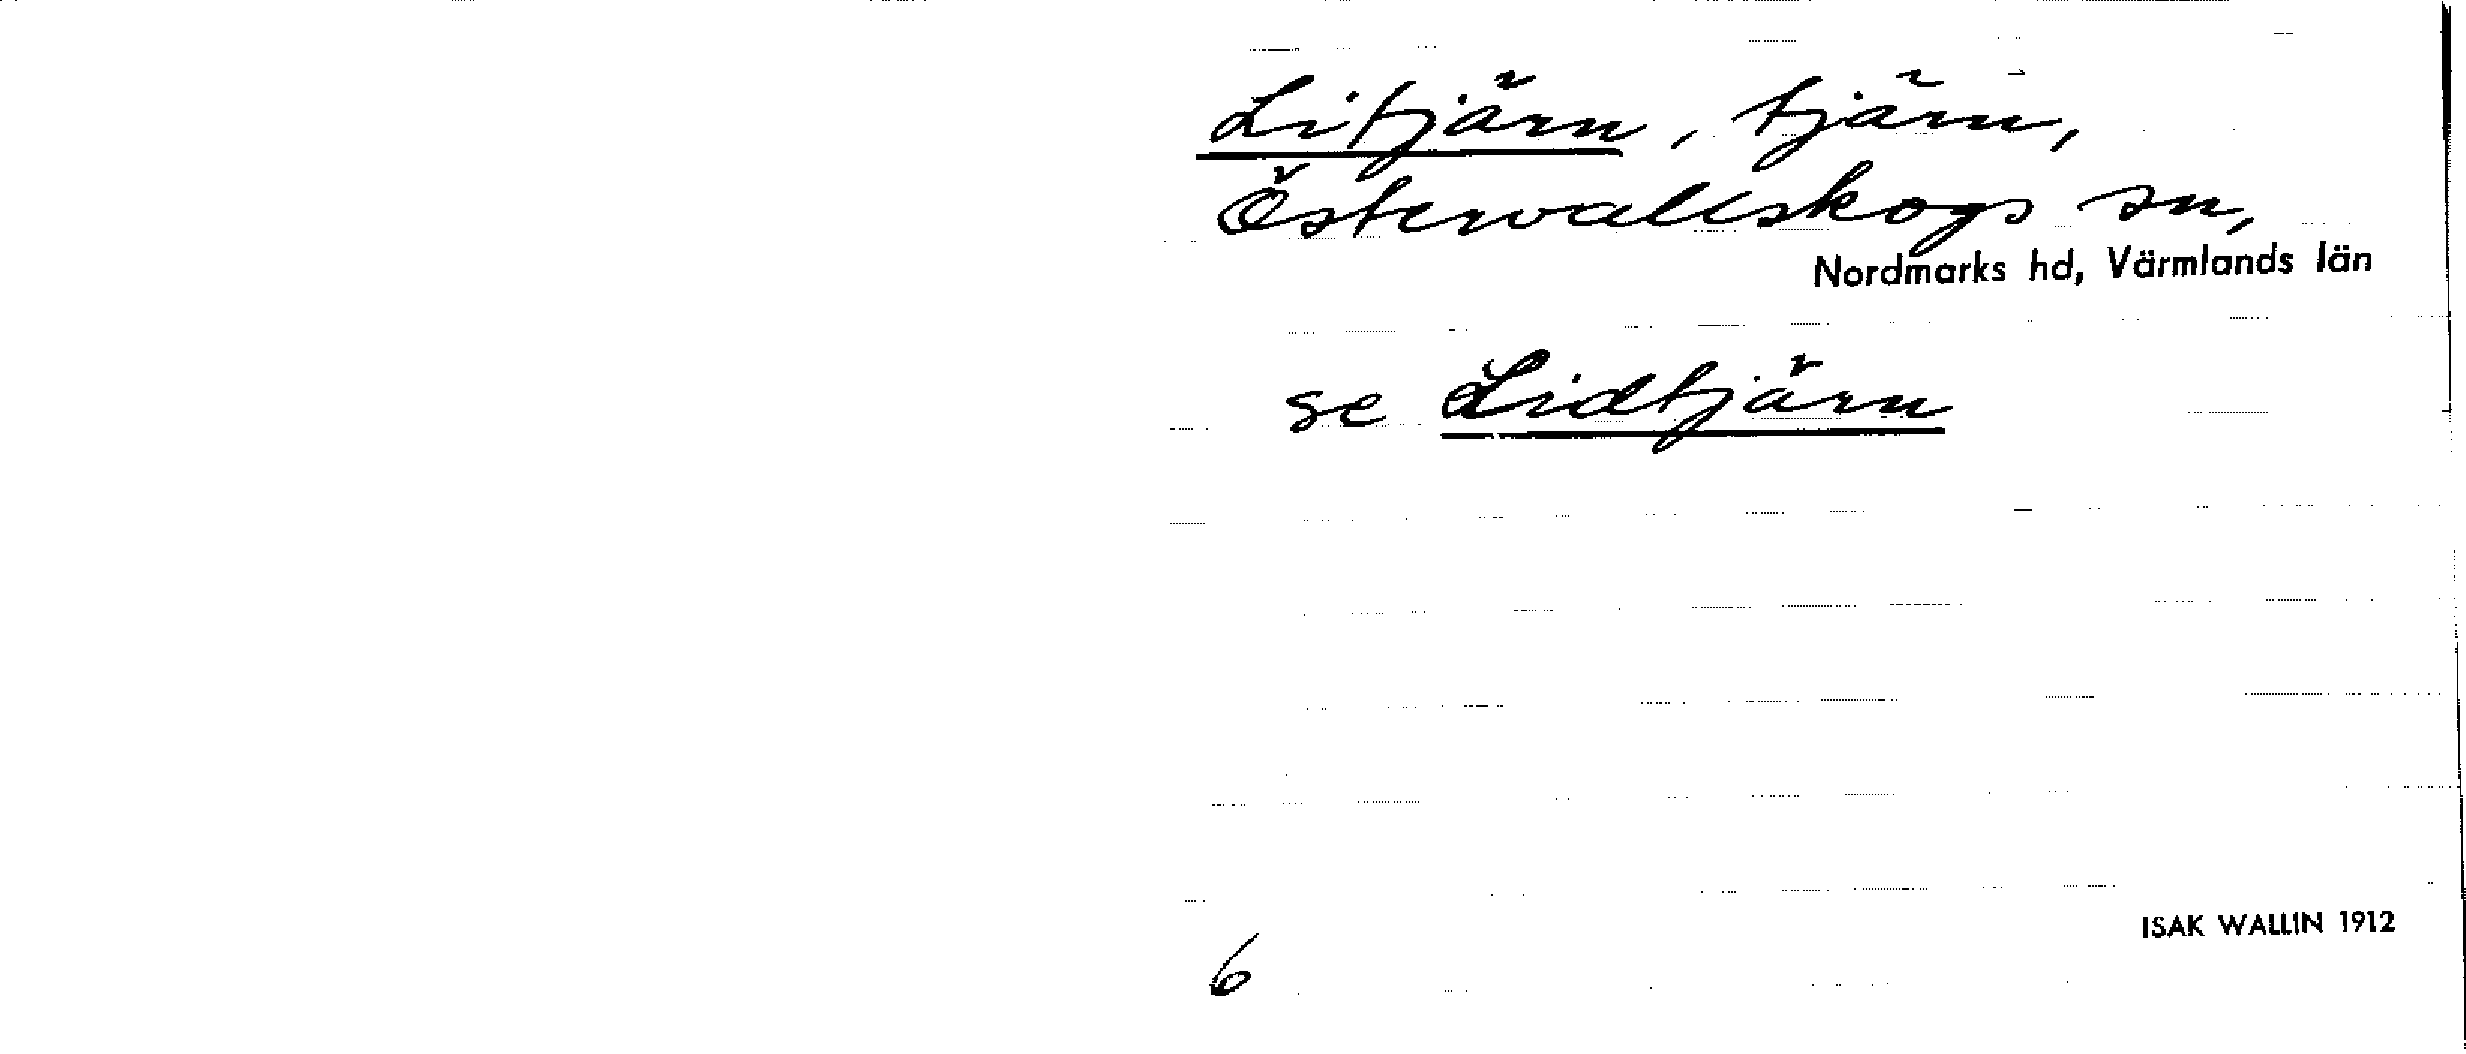 Litjärn, tjärn,
Östervallskogs sn,
Nordmarks hd, Värmlands län
se Lidtjärn
ISAK WALLIN 1912
6